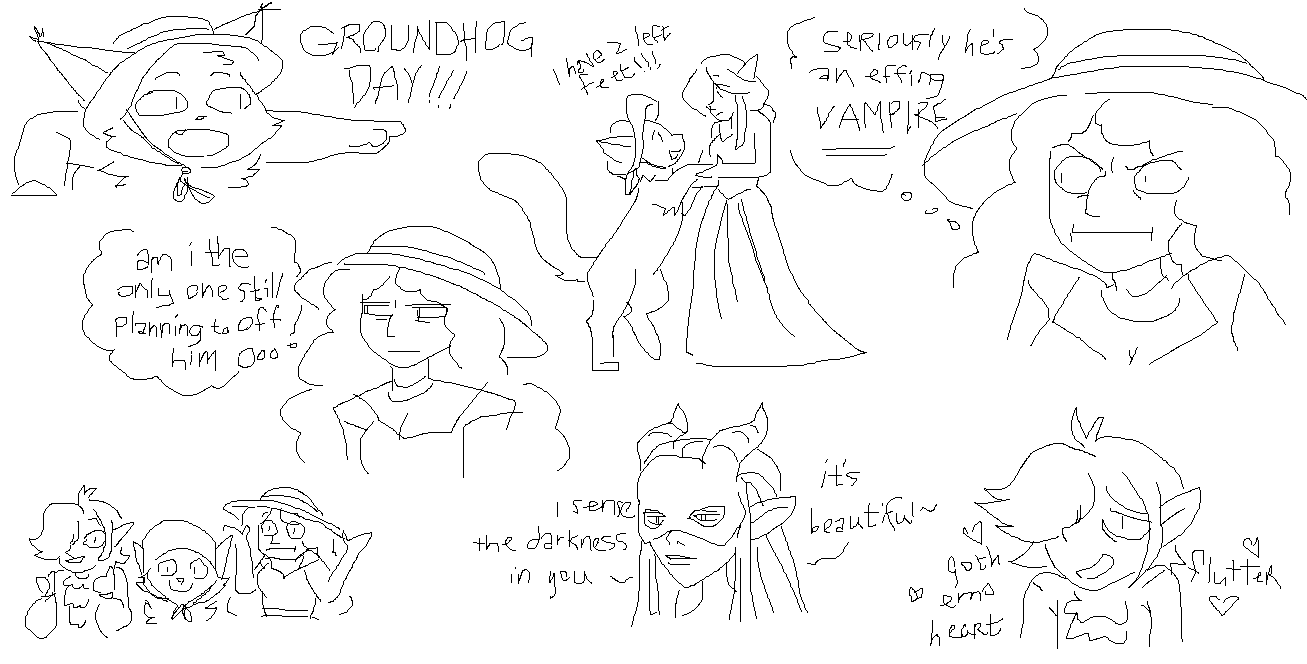 GROUNDHOG
DAY!!!
I have 2 left
feet!!!
seriously he's
an effing
VAMPIRE
am i the
only one still
planning to off
him ooo
I sense
the darkness
in you ~
it's
beautiful ~
goth
emo
heart
flutter